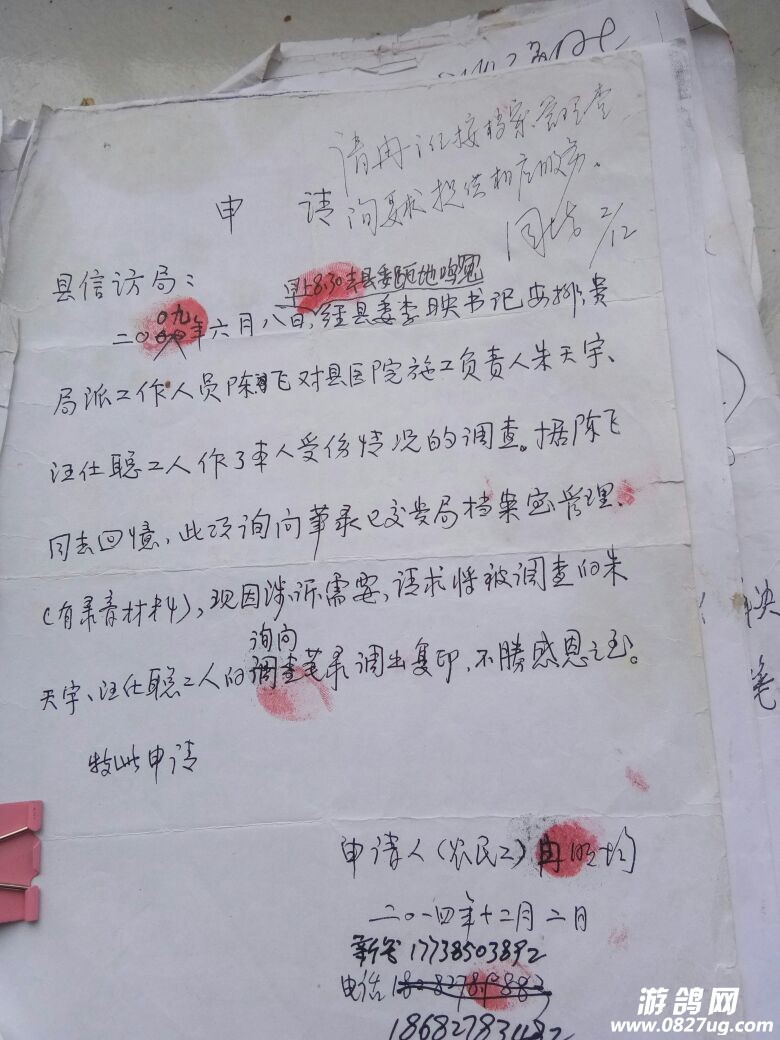 请冉主任按档案管理查
询要求提供相应服务。
2/12
申 请
县信访局：
早上8:30去县委跪地鸣冤
二00九年六月八日，经县委李映书记安排，贵
局派工作人员陈飞对县医院施工负责人朱天宇、
汪仕聪二人作了本人受伤情况的调查。据陈飞
同志回憶，此项询问笔录已交贵局档案室管理、
(有录音材料)，现因涉诉需要，请求将被调查的朱
询问
天宇、汪仕聪二人的调查笔录调出复印，不勝感恩之至。
特此申请
申请人（农民工）冉明均
二〇一四年十二月二日
新号 17738503892
电话
游鸽网
www.0827ug.com